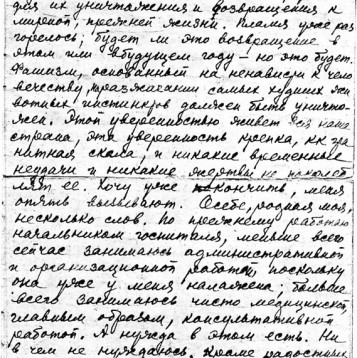 для их уничтожения и возвращения к
мирной, прежней жизни. Пламя уже раз
горелось; будет ли это возвращение в
этом или в будущем году – но это будет.
Фашизм, основанный на ненависти к чело
вечеству, разжигании самых худших жи
вотных инстинктов должен быть уничто-
жен. Этой уверенностью живет вся наша
страна, эта уверенность крепка, как гра
нитная скала, и никакие временные
неудачи и никакие жертвы не поколеб
лят ее. Хочу уже кончить, меня
опять вызывают. О себе, родная моя,
несколько слов. По прежнему работаю
начальником госпиталя, меньше всего
сейчас занимаюсь административной
и организационной работой, поскольку
она уже у меня налажена; больше
всего занимаюсь чисто медицинской,
главным образом, консультативной
работой. А нужда в этом есть. Ни
в чем не нуждаюсь. Кроме радостных